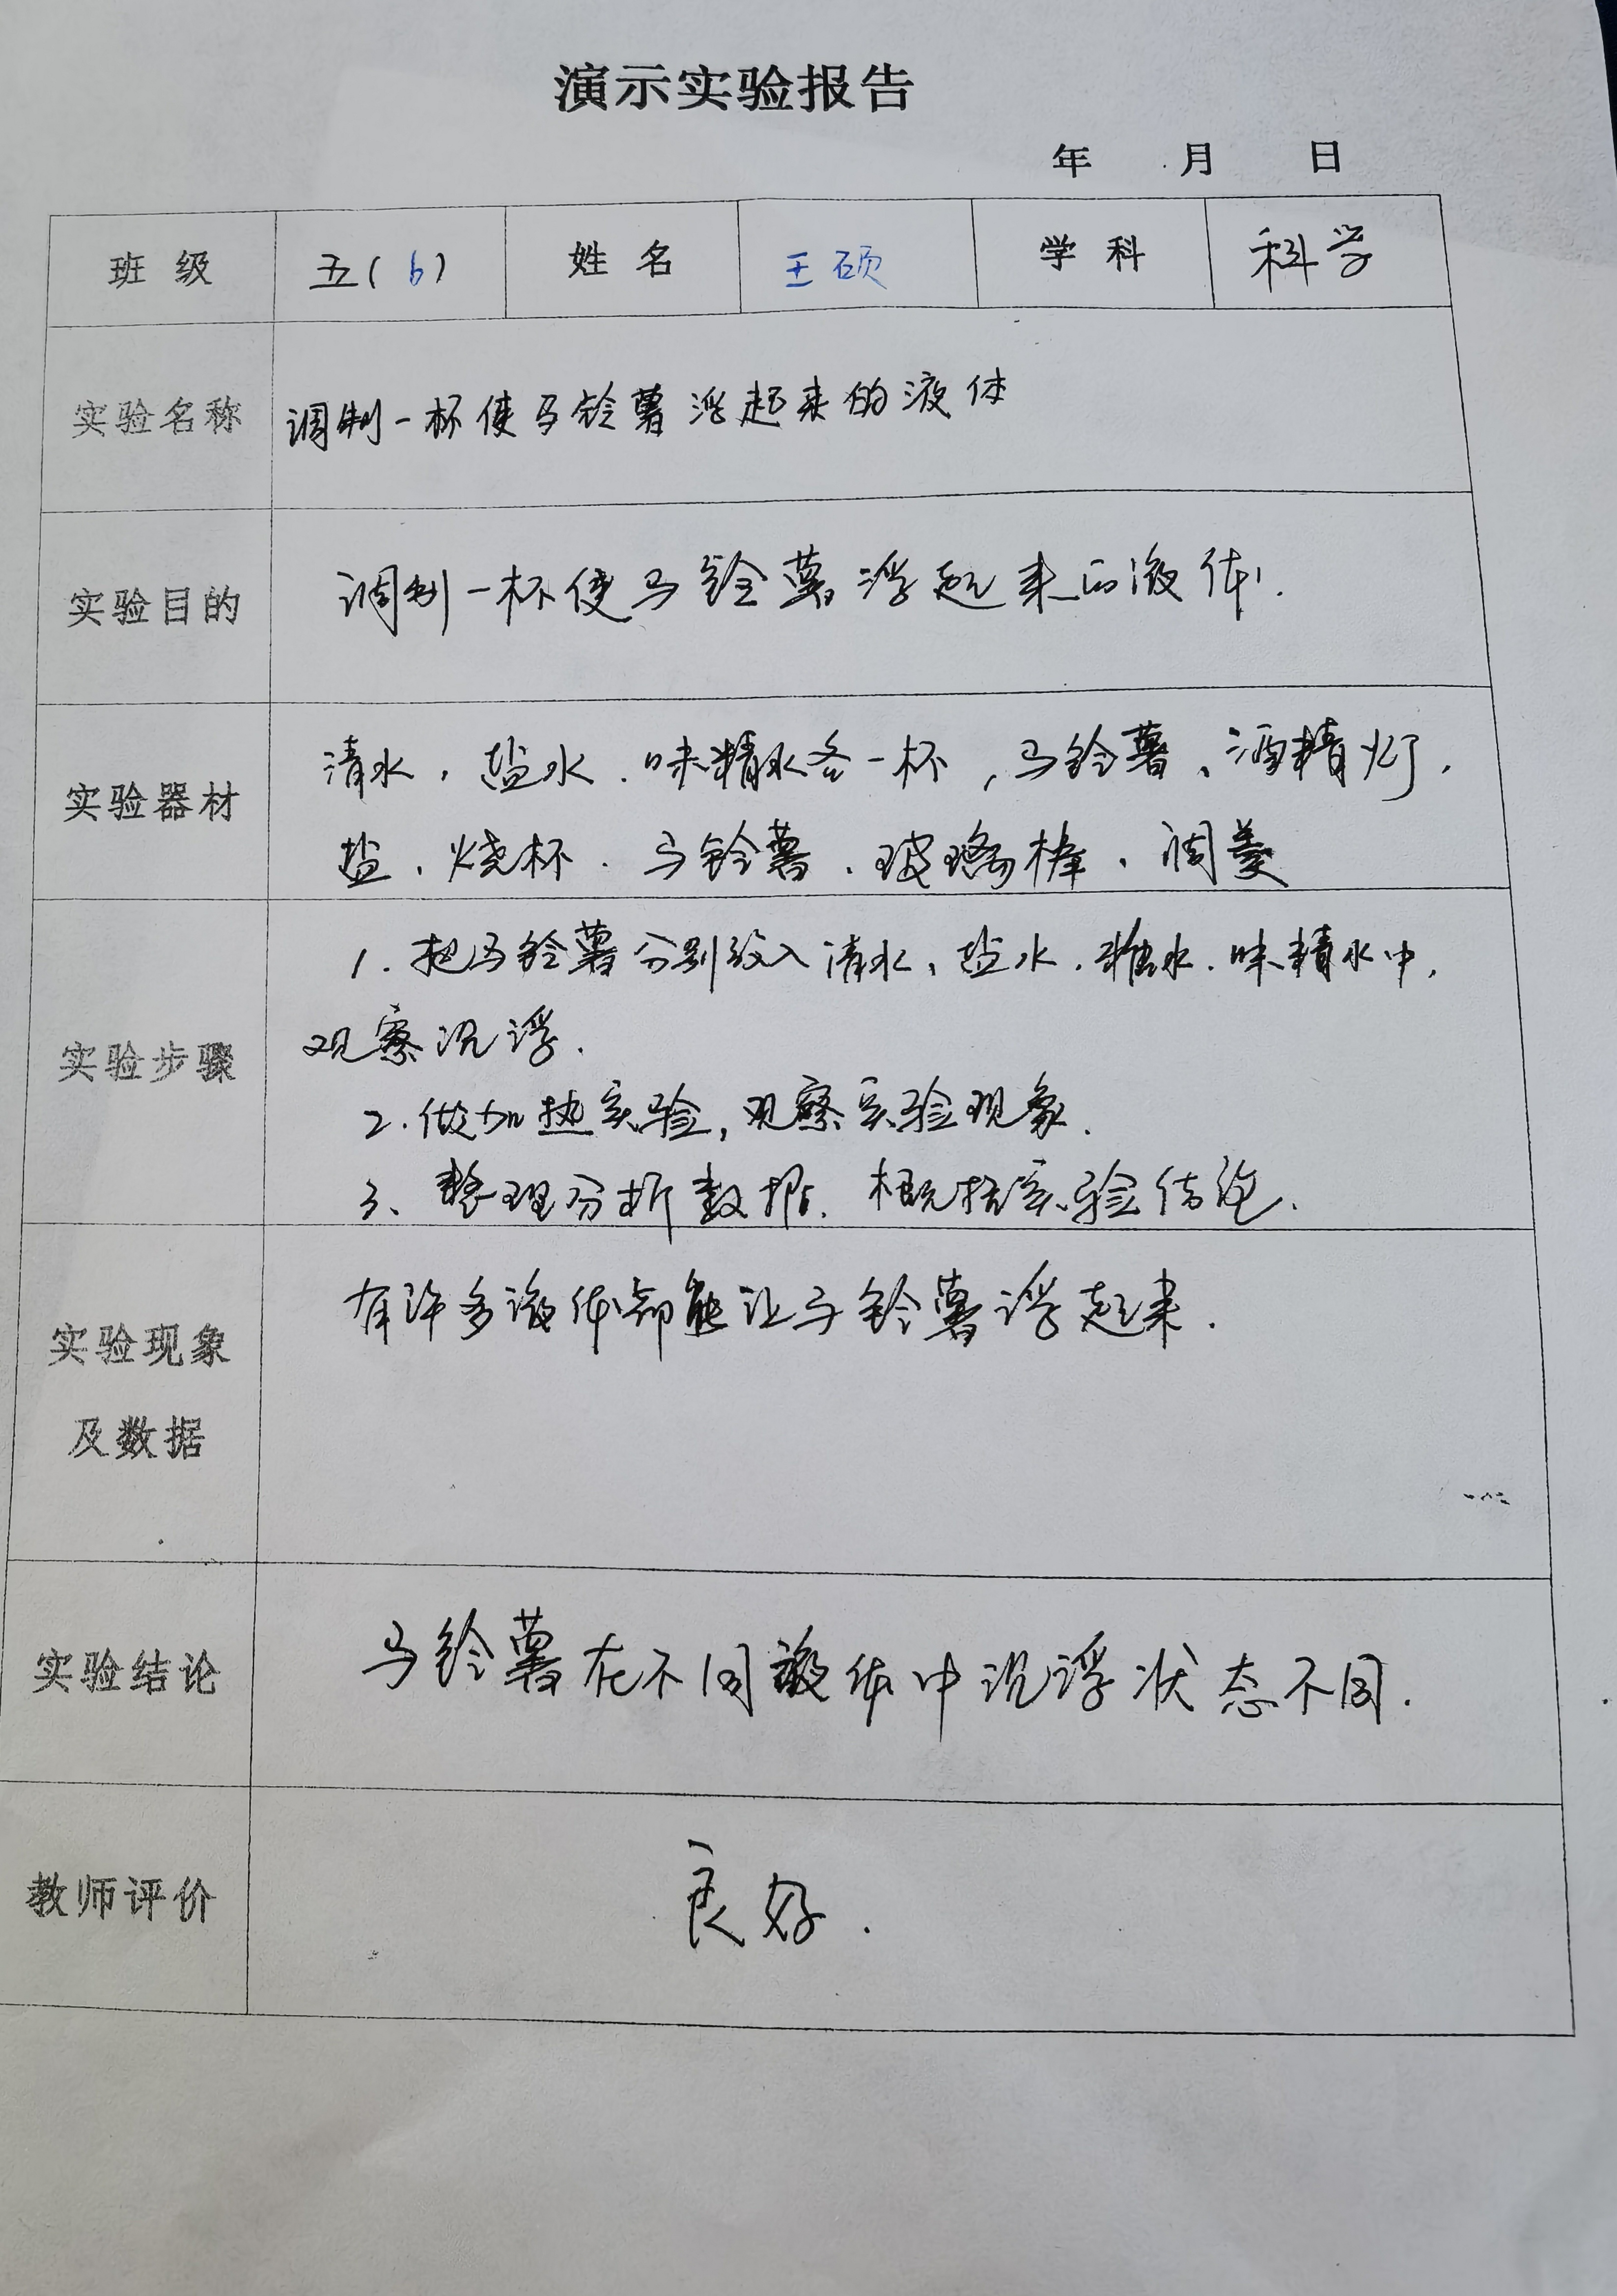 演示实验报告
年 月 日
班 级 五(6) 姓 名 王硕 学 科 科学
实验名称 调制一杯使马铃薯浮起来的液体
实验目的 调制一杯使马铃薯浮起来的液体.
实验器材
清水、盐水、味精水各一杯,马铃薯、酒精灯、
盐、烧杯、马铃薯、玻璃棒、调羹
实验步骤
1.把马铃薯分别放入清水、盐水、糖水、味精水中,
观察沉浮.
2.做加热实验,观察实验现象.
3、整理分析数据.概括实验结论.
实验现象
及数据
有许多液体都能让马铃薯浮起来.
实验结论 马铃薯在不同液体中沉浮状态不同.
教师评价 良好.